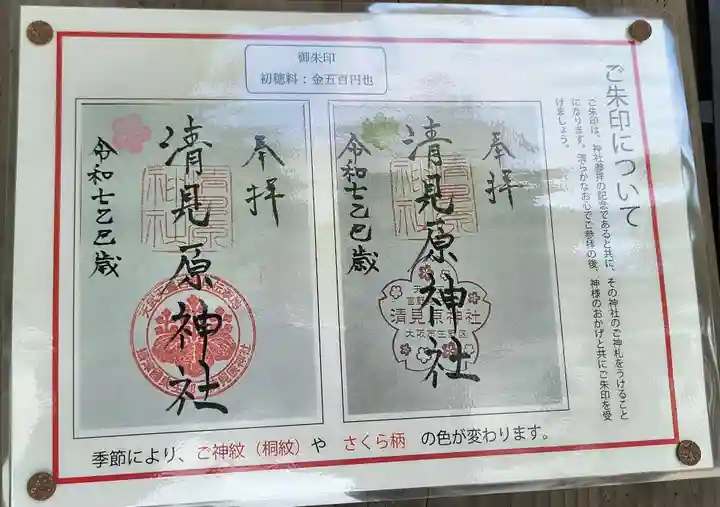 ご朱印について
ご朱印は、神社参拝の記念であると共に、その神社のご神札をうけること
になります。清らかなお心でご参拝の後、神様のおかげと共にご朱印を受
けましょう。
御朱印
初穂料：金五百円也
奉拝
清見原神社
令和七乙巳歳
奉拝
清見原神社
清見原神社
大阪市生野区
令和七乙巳歳
季節により、ご神紋（桐紋）や さくら柄 の色が変わります。